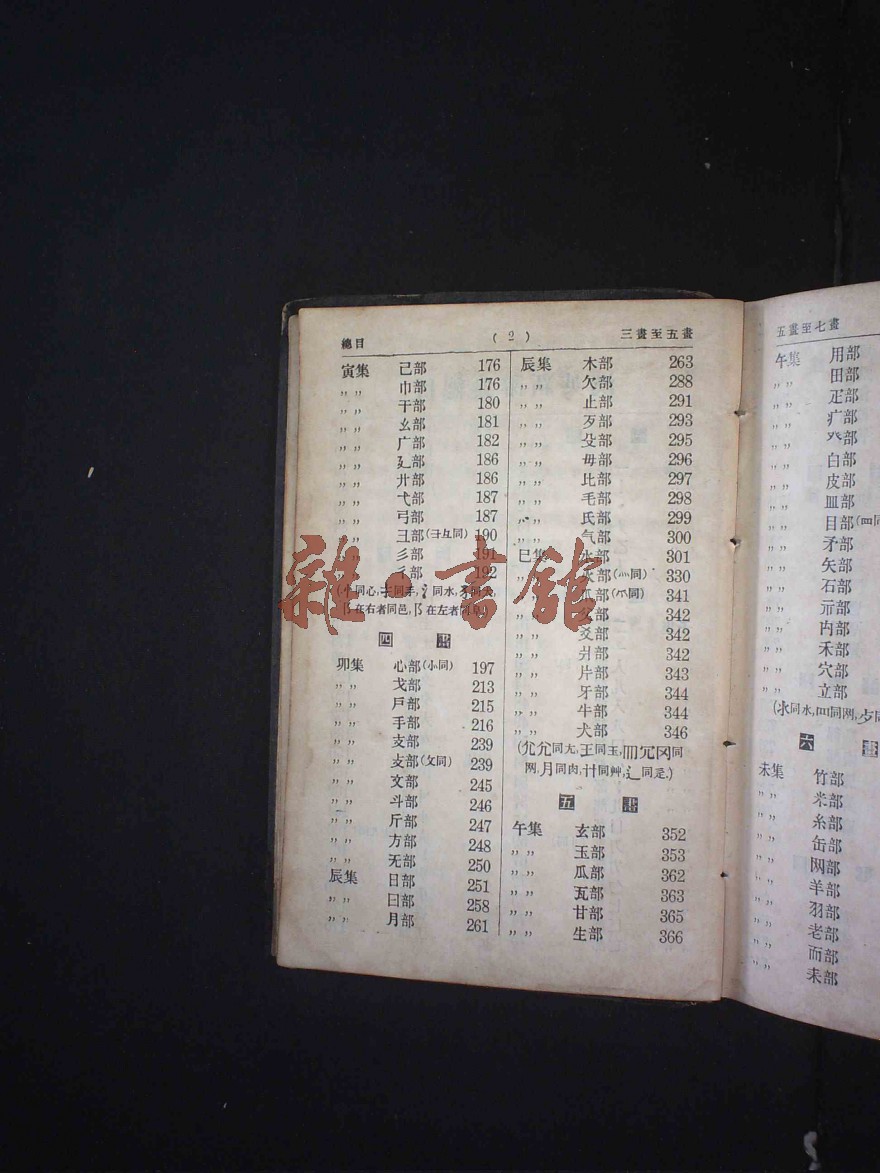 總目 (2) 三畫至五畫
寅集 己部 176
〃〃 巾部 176
〃〃 干部 180
〃〃 幺部 181
〃〃 广部 182
〃〃 廴部 186
〃〃 廾部 186
〃〃 弋部 187
〃〃 弓部 187
〃〃 彐部(彐彑同) 190
〃〃 彡部 191
彳部 192
(忄同心,扌同手,氵同水,犭同犬,
阝在右者同邑,阝在左者同阜)
四 畫
卯集 心部(㣺同) 197
〃〃 戈部 213
〃〃 戶部 215
〃〃 手部 216
〃〃 支部 239
〃〃 攴部(攵同) 239
〃〃 文部 245
〃〃 斗部 246
〃〃 斤部 247
〃〃 方部 248
〃〃 无部 250
辰集 日部 251
〃〃 曰部 258
〃〃 月部 261
辰集 木部 263
〃〃 欠部 288
〃〃 止部 291
〃〃 歹部 293
〃〃 殳部 295
〃〃 毋部 296
〃〃 比部 297
〃〃 毛部 298
〃〃 氏部 299
〃〃 气部 300
巳集 水部 301
〃〃 火部(灬同) 330
〃〃 爪部(爫同) 341
〃〃 父部 342
〃〃 爻部 342
〃〃 爿部 342
〃〃 片部 343
〃〃 牙部 344
〃〃 牛部 344
〃〃 犬部 346
同尢,王同玉,同
网,月同肉,艹同艸,辶同辵)
五 畫
午集 玄部 352
〃〃 玉部 353
〃〃 瓜部 362
〃〃 瓦部 363
〃〃 甘部 365
〃〃 生部 366
五畫至七畫
午集 用部
〃〃 田部
〃〃 疋部
〃〃 疒部
〃〃 癶部
〃〃 白部
〃〃 皮部
〃〃 皿部
〃〃 目部(罒同
〃〃 矛部
〃〃 矢部
〃〃 石部
〃〃 示部
〃〃 禸部
〃〃 禾部
〃〃 穴部
〃〃 立部
(氺同水,罒同网,歺同
六 畫
未集 竹部
〃〃 米部
〃〃 糸部
〃〃 缶部
〃〃 网部
〃〃 羊部
〃〃 羽部
〃〃 老部
〃〃 而部
〃〃 耒部
雜·書館